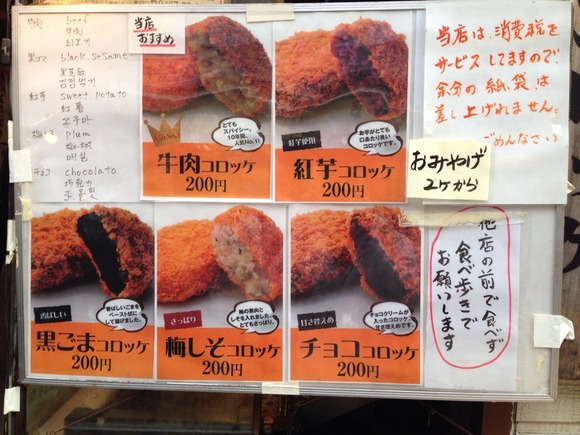 牛肉 beef
牛肉
黒ゴマ black sesame
黒芝麻
紅芋 sweet potato
紅薯
고구마
plum
매실
チョコ chocolato
巧克力
当店
おすすめ
人気No.1
とても
スパイシー。
10年間、
人気No.1!
牛肉コロッケ
200円
紅芋使用
お芋がとても
口あたり良い
コロッケです。
紅芋コロッケ
200円
当店は、消費税を
サービスしてますので、
余分の紙袋は
差し上げれません。
ごめんなさい
おみやげ
2ケから
香ばしい
香ばしいごまを
ペースト状に
して揚げました。
黒ごまコロッケ
200円
さっぱり
梅の果肉と
しそを入れました。
とてもさっぱり。
梅しそコロッケ
200円
甘さ控えめ
チョコクリームが
入ったコロッケ。
甘さ控えめです。
チョココロッケ
200円
他店の前で食べず
食べ歩きで
お願いします